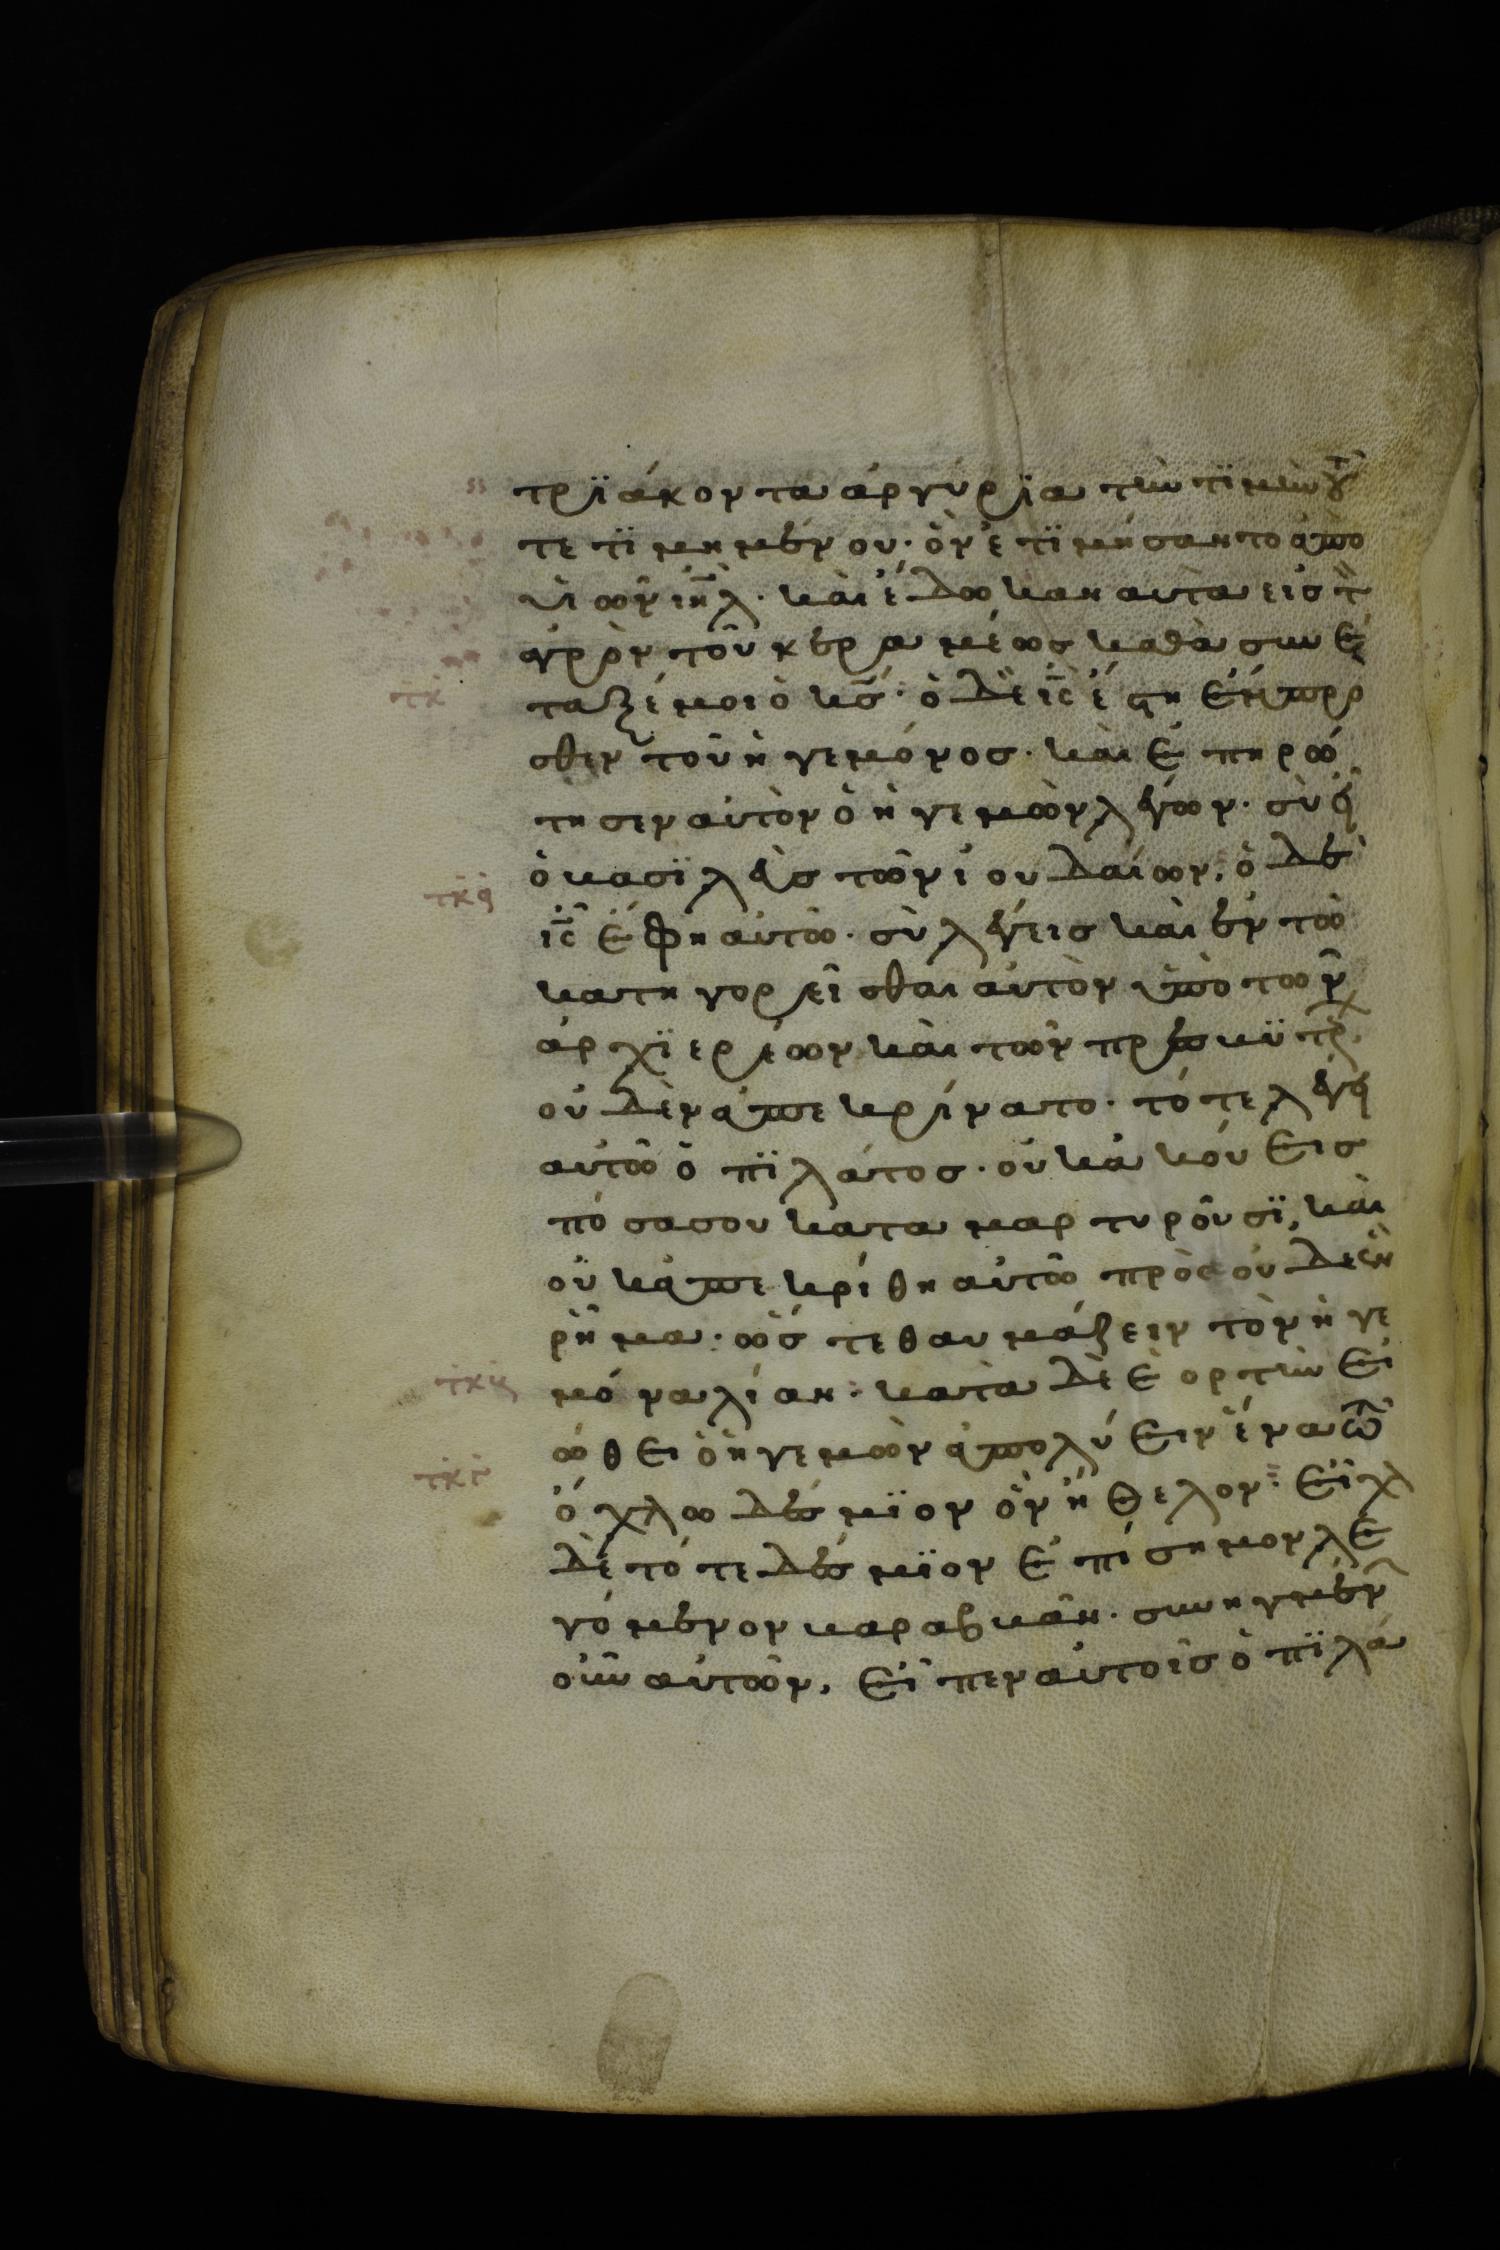 τρϊάκοντα ἀργύρϊα τὴν τϊμὴν τοῦ
τετϊμημένου· ὃν ἐτϊμήσαντο ἀπὸ
υἱῶν ιη̅λ· καὶ ἔδωκαν αὐτὰ εἰς τὸν
ἀγρὸν τοῦ κεραμέως καθὰ συνέ
ταξέ μοι ὁ κ̅ς· ὁ δὲ ι̅ς ἔστη ἔμπρο
σθεν τοῦ ἡγεμόνος· καὶ ἐπηρώ
τησεν αὐτὸν ὁ ἡγεμὼν λέγων· σὺ εἶ
ὁ βασϊλεὺς τῶν ἰουδαίων, ὁ δὲ
ι̅ς ἔφη αὐτῶ· σὺ λέγεις καὶ ἐν τῶ
κατηγορεῖσθαι αὐτὸν ὑπὸ τῶν
ἀρχϊερέων καὶ τῶν πρεσβϋτρ
οὐδὲν ἀπεκρίνατο· τότε λέγει
αὐτῶ ὁ πϊλάτος· οὐκ ἀκούεις
πόσα σου καταμαρτυροῦσϊ, καὶ
οὐκ ἀπεκρίθη αὐτῶ πρὸς οὐδὲ ἓν
ῥῆμα· ὥστε θαυμάζειν τὸν ἡγε
μόνα λίαν· κατὰ δὲ ἑορτὴν εἰ
ώθει ὁ ἡγεμὼν ἀπολύειν ἕνα τῶ
ὄχλω δέσμϊον ὃν ἤθελον· εἶχον
δὲ τότε δέσμϊον ἐπίσημον λε
γόμενον βαραββᾶν· συνηγμένων
οὖν αὐτῶν, εἶπεν αὐτοῖς ὁ πϊλά